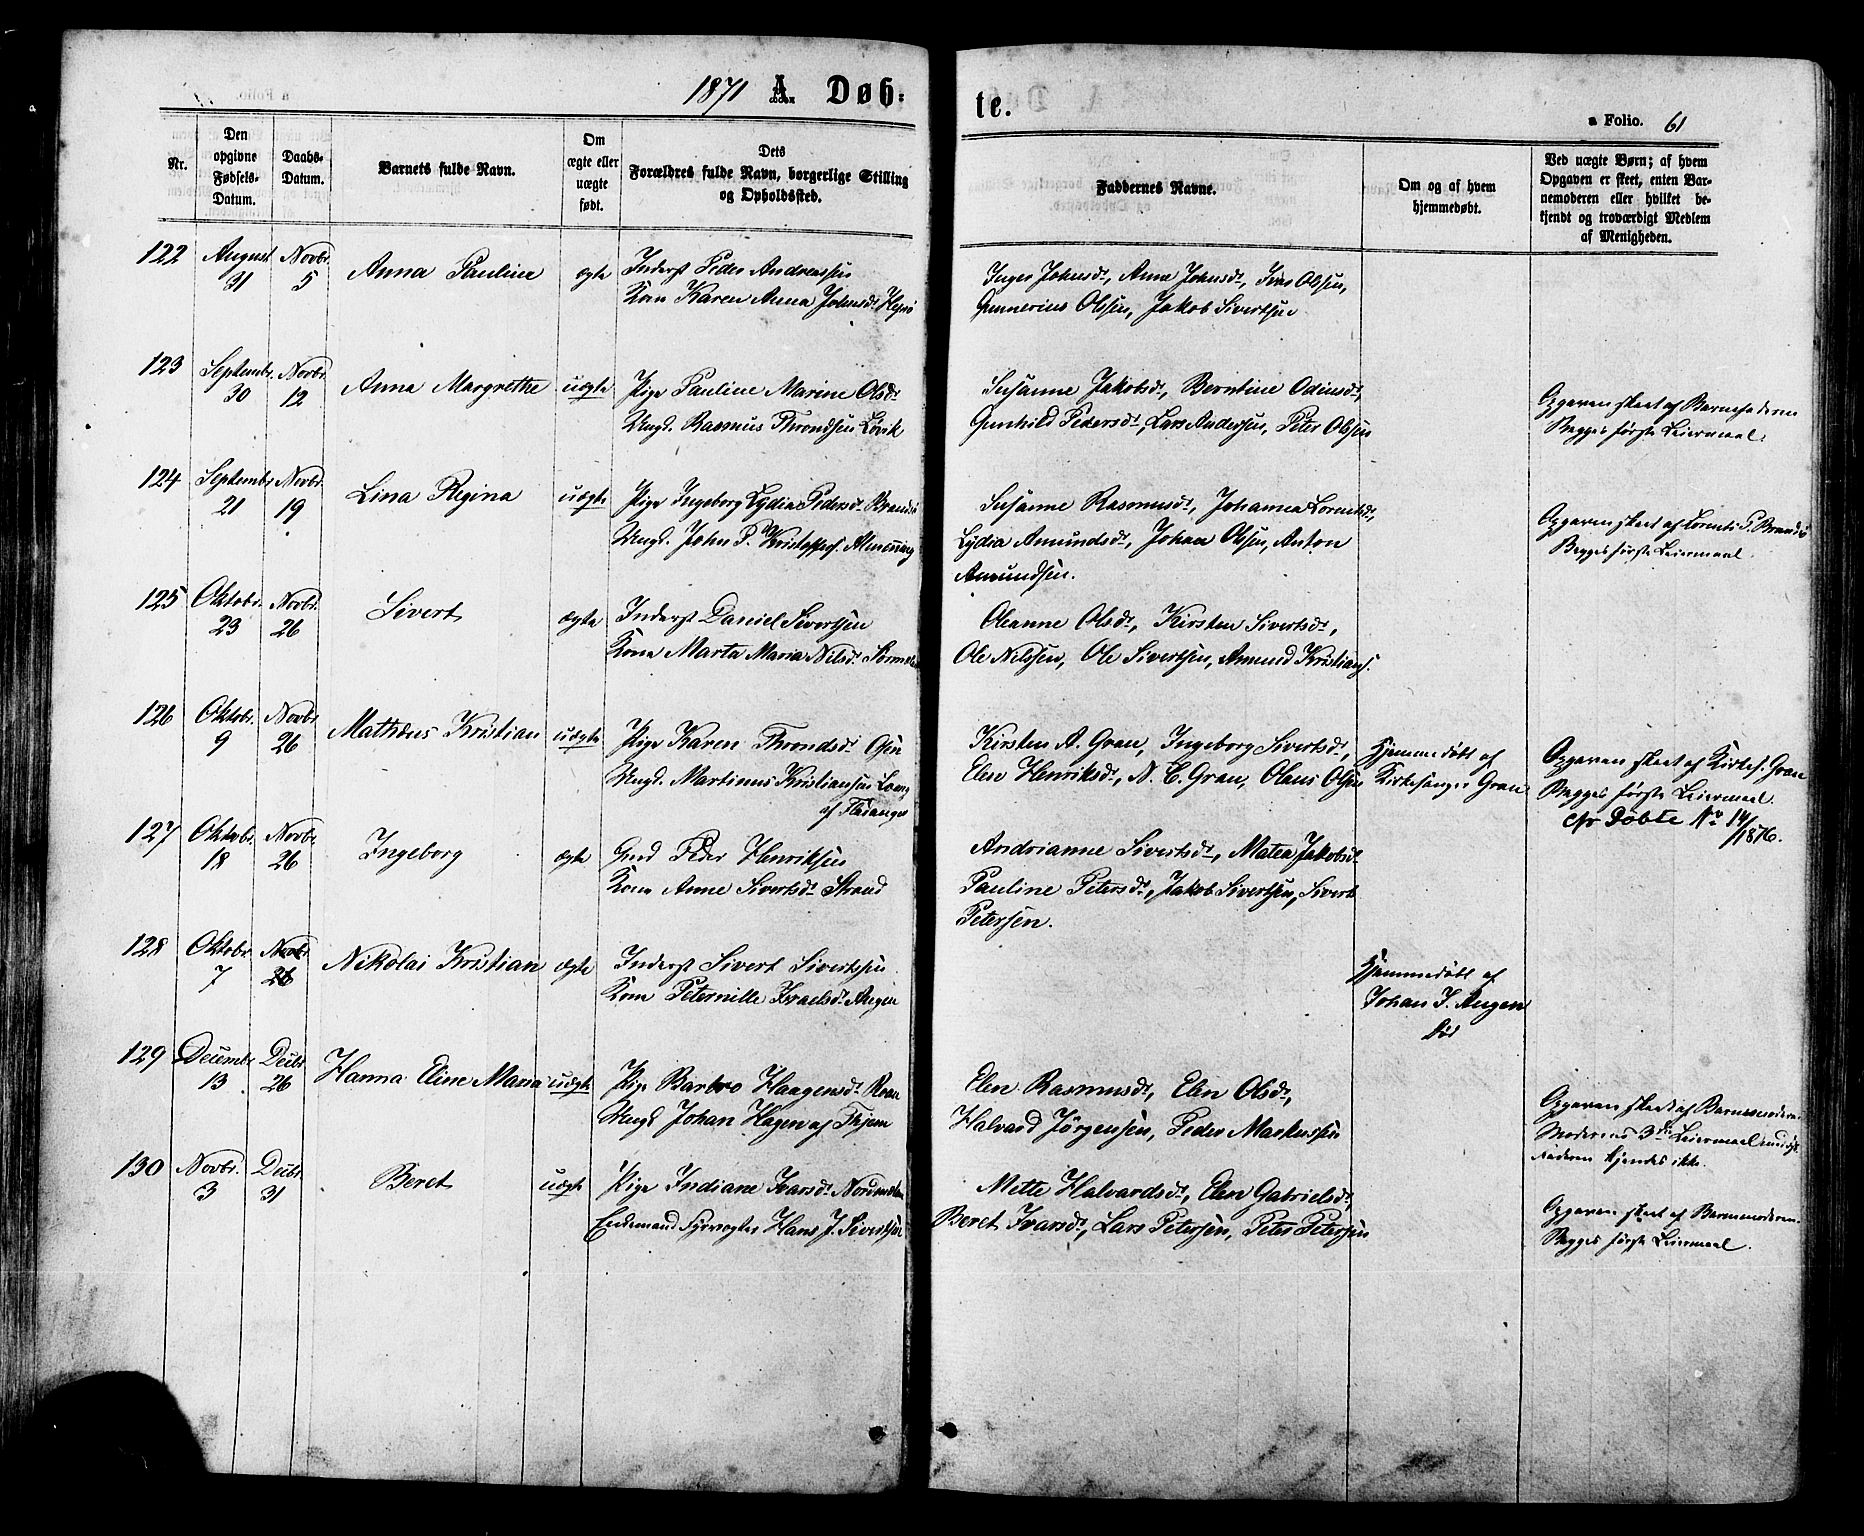 1871 A. Døb-
te.
a Folio. 61
Nr.
Den opgivne Fødsels-Datum.
Daabs-Datum.
Barnets fulde Navn.
Om ægte eller uægte født.
Dets Forældres fulde Navn, borgerlige Stilling og Opholdssted.
Faddernes Navne.
Om og af hvem hjemmedøbt.
Ved uægte Børn; af hvem Opgaven er skeet, enten Barnemoderen eller hvilket bekjendt og troværdigt Medlem af Menigheden.
122 August 31 Novbr. 5 Anna Pauline ægte
Inderst Peder Andreassen
Kone Karen Anna Johnsdt.
Inger Johnsdt., Anne Johnsdt., Sivert Olsen,
Gunnerius Olsen, Jakob Sivertsen
123 Septembr. 30 Novbr. 12 Anna Margrethe uægte
Pige Pauline Marine Olsdt.
Ungk. Rasmus Throndsen Løvik
Susanne Jakobsdt., Berntine Odinsdt.,
Gunhild Pedersdt., Lars Andersen, Peter Olsen
Opgaven skeet af Barnefaderen
Begges første Leiermaal.
124 Septembr. 21 Novbr. 19 Lina Regina uægte
Pige Ingeborg Lydia Pedersdt. Brandsø
Ungk. John P. Kristoffers. Almenning
Susanne Rasmusdt., Johanna Lorentsdt.,
Lydia Amundsdt., Johan Olsen, Anton
Amundsen.
Opgaven skeet af Lorents P. Brandsø
Begges første Leiermaal.
125 Oktobr. 23 Novbr. 26 Sivert ægte
Inderst Daniel Sivertsen
Kone Marta Maria Nilsdt.
Oleanne Olsdt., Kirsten Sivertsdt.,
Ole Nilssen, Ole Sivertsen, Amund Kristians.
126 Oktobr. 9 Novbr. 26 Mathæus Kristian uægte
Pige Karen Throndsdt. Osen
Ungk. Martinus Kristiansen
af Fladanger
Kirsten A. Gran, Ingeborg Sivertsdt.,
Elen Henriksdt., N. C. Gran, Olaus Olsen
Hjemmedøbt af
Kirkesanger Gran
Opgaven skeet af Kirkes. Gran
Begges første Leiermaal.
cfr Døbte No 14/1876.
127 Oktobr. 18 Novbr. 26 Ingeborg ægte
Gmd Peder Henriksen
Kone Anne Sivertsdt. Strand
Andrianne Sivertsdt., Matea Jakobsdt.
Pauline Petersdt., Jakob Sivertsen, Sivert
Petersen.
128 Oktobr. 7 Novbr. 26 Nikolai Kristian ægte
Inderst Sivert Sivertsen
Kone Peternille Israelsdt. Angen
Hjemmedøbt af
Johan I. Angen
Død
129 Decembr. 13 Decbr. 26 Hanna Eline Maria uægte
Pige Barbro Haagensdt.
Ungk Johan Hagen af
Elen Rasmusdt., Elen Olsdt.,
Halvard Jørgensen, Peder Markussen
Opgaven skeet af Barnemoderen.
Moderens 3die Leiermaal
Faderen kjendes ikke.
130 Novbr. 3 Decbr. 31 Beret uægte
Pige Indiane Ivarsdt.
Enkemand Fyrvogter Hans J. Sivertsen
Mette Halvardsdt., Elen Gabrielsdt.,
Beret Ivarsdt., Lars Petersen, Peter Petersen
Opgaven skeet af Barnemoderen.
Begges første Leiermaal.